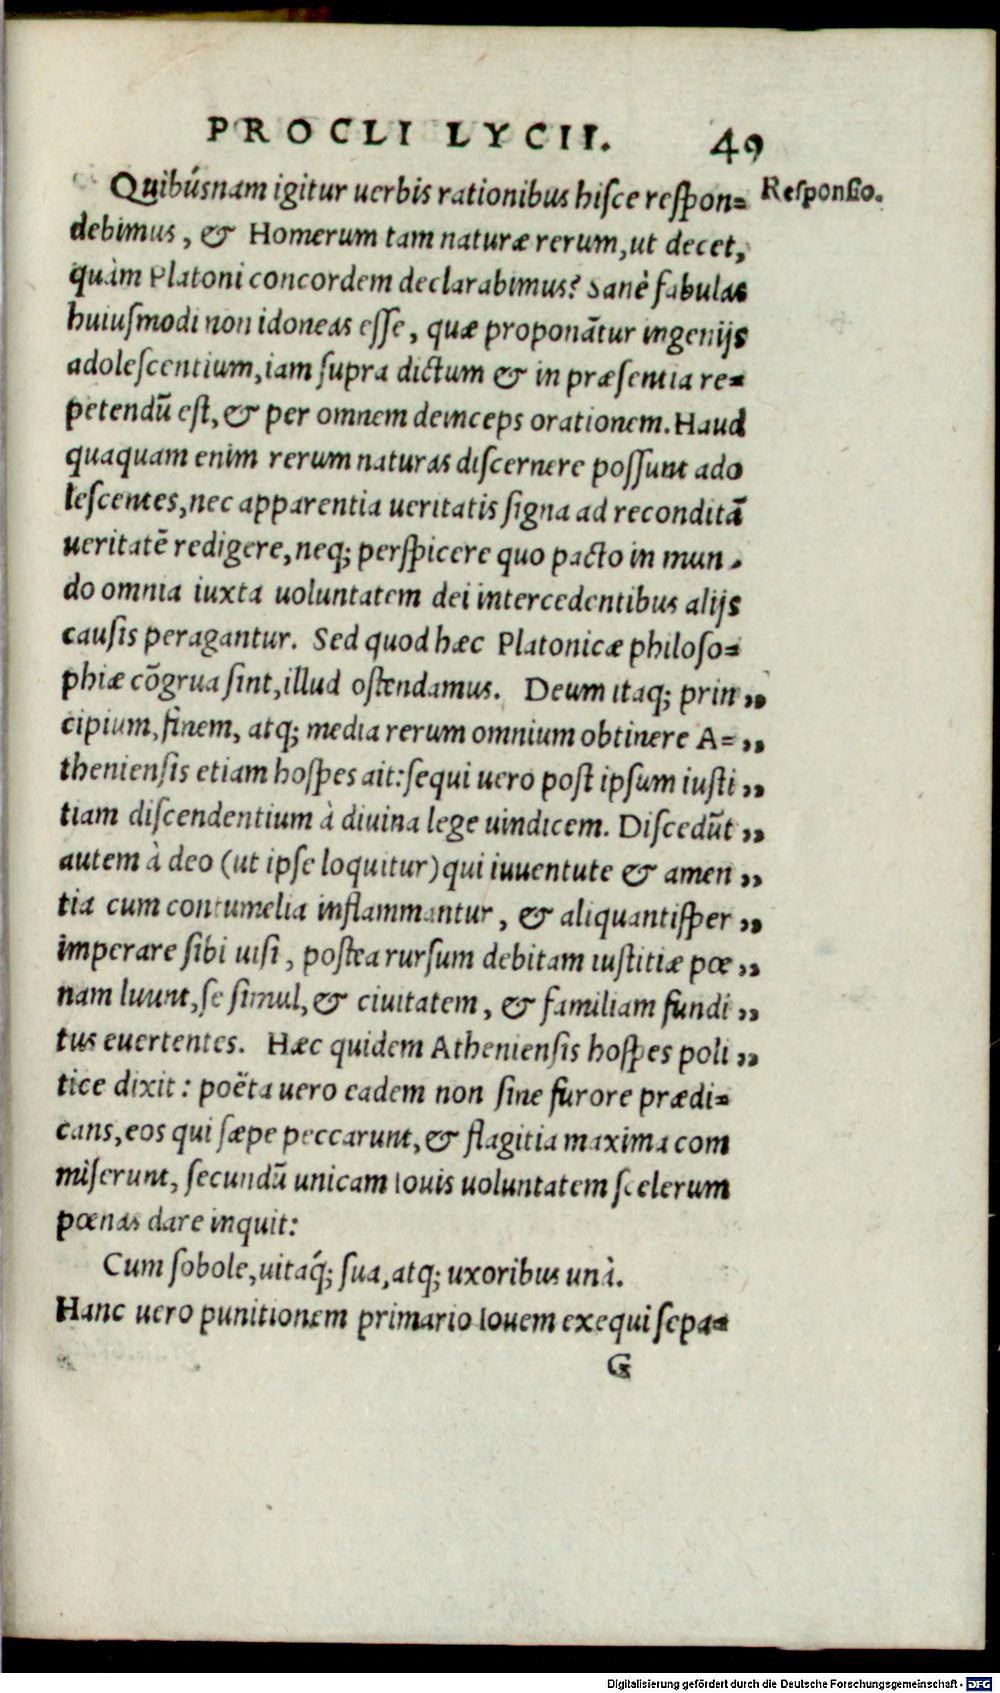 PROCLI LYCII. 49
Quibúsnam igitur uerbis rationibus hisce respon= Responsio.
debimus, & Homerum tam naturæ rerum, ut decet,
quàm Platoni concordem declarabimus? Sanè fabulas
huiusmodi non idoneas esse, quæ proponãtur ingenijs
adolescentium, iam supra dictum & in præsentia re=
petendũ est, & per omnem deinceps orationem. Haud
quaquam enim rerum naturas discernere possunt ado
lescentes, nec apparentia ueritatis signa ad reconditã
ueritatẽ redigere, neq; perspicere quo pacto in mun-
do omnia iuxta uoluntatem dei intercedentibus alijs
causis peragantur. Sed quod hæc Platonicæ philoso=
phiæ cõgrua sint, illud ostendamus. Deum itaq; prin „
cipium, finem, atq; media rerum omnium obtinere A= „
theniensis etiam hospes ait: sequi uero post ipsum iusti „
tiam discendentium à diuina lege uindicem. Discedũt „
autem à deo (ut ipse loquitur) qui iuuentute & amen „
tia cum contumelia inflammantur, & aliquantisper „
imperare sibi uisi, postea rursum debitam iustitiæ pœ „
nam luunt, se simul, & ciuitatem, & familiam fundi „
tus euertentes. Hæc quidem Atheniensis hospes poli „
tice dixit: poëta uero eadem non sine furore prædi=
cans, eos qui sæpe peccarunt, & flagitia maxima com
miserunt, secundũ unicam Iouis uoluntatem scelerum
pœnas dare inquit:
Cum sobole, uitaq́; sua, atq; uxoribus unà.
Hanc uero punitionem primario Iouem exequi sepa=
G
Digitalisierung gefördert durch die Deutsche Forschungsgemeinschaft - DFG